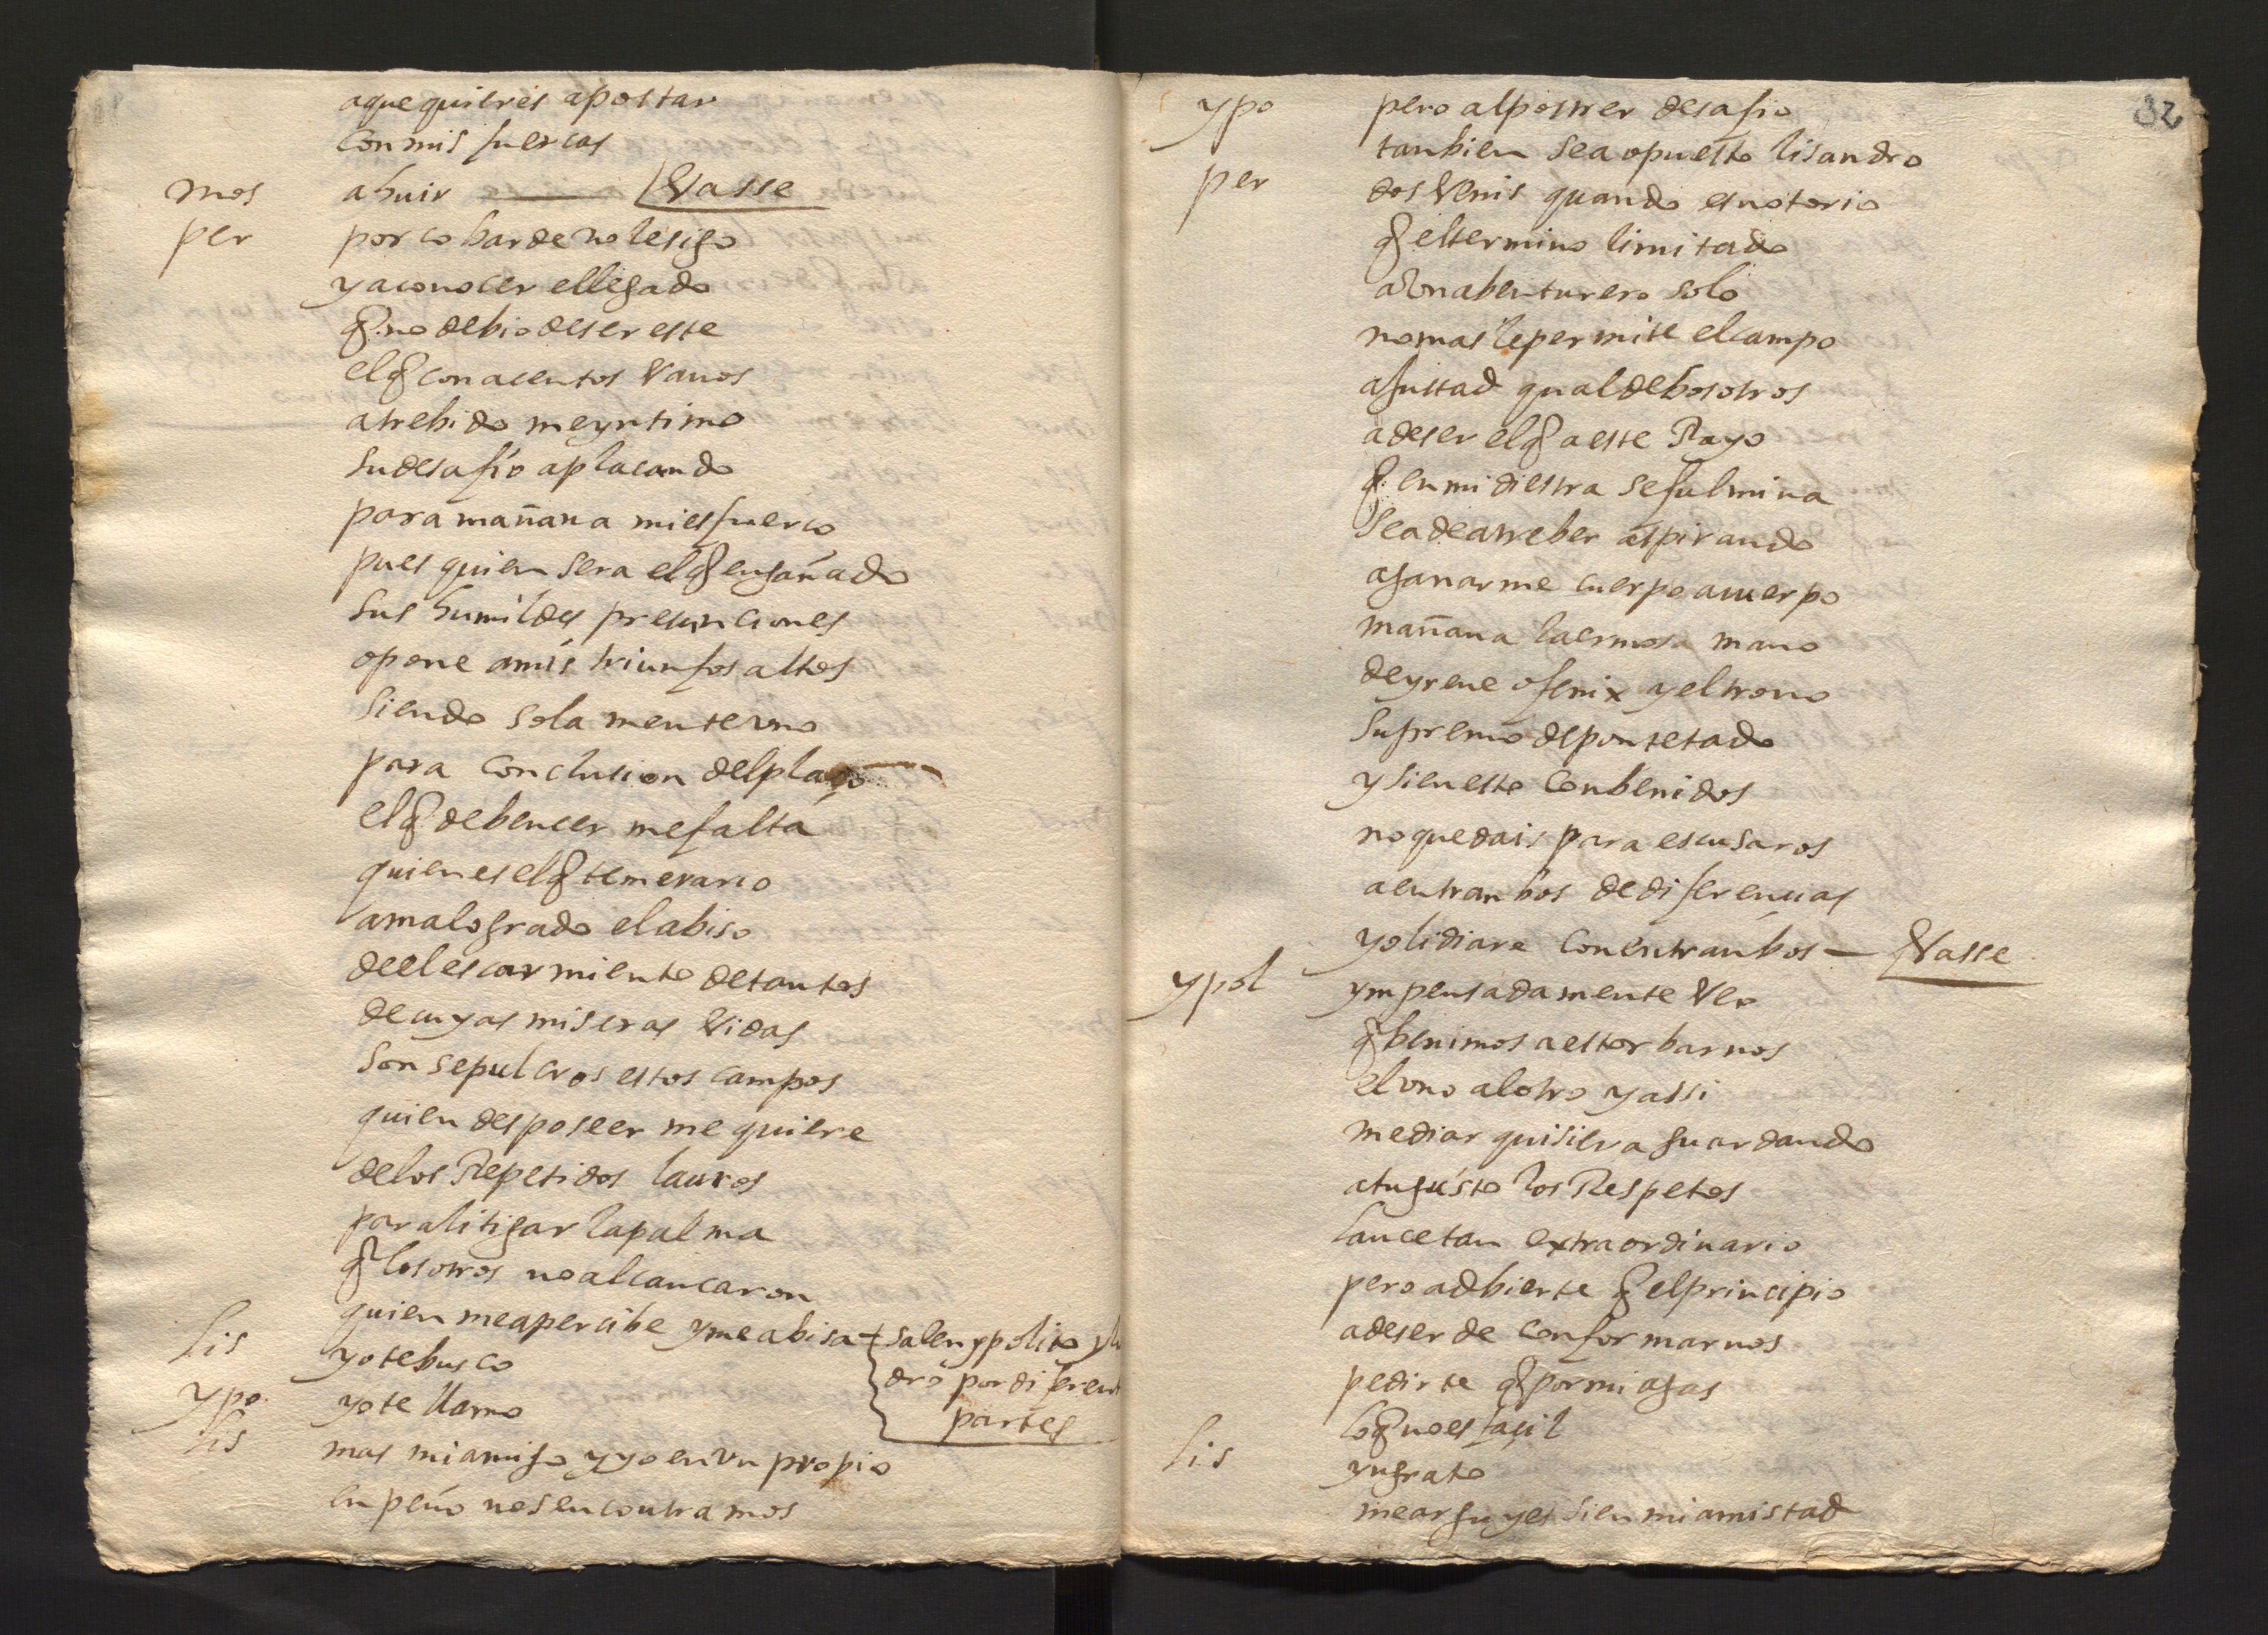 aque quieres apostar
con mis fuercas
mos ahuir Vasse
per por cobarde no lesigo
yaconocer ellegado
q no debio deser este
elq con acentos Vanos
atrebido meyntimo
sudesafio aplacando
para mañana miesfuerco
pues quien sera elq engañado
sus humildes presunciones
opone amis triunfos altos
siendo sola mente vno
para conclusion delplaço
elq debencer mefalta
quienes elq temerario
amalogrado elabiso
deelescarmiento detantos
decuyas miseras Vidas
son sepulcros estos campos
quien desposeer me quiere
delos Repetidos lauros
paralitigar lapalma
q losotros noalcancaron
quien meapercibe ymeabisa salenypolito yli
dro por diferent
partes
lis yotebusco
ypo yote llamo
lis mas miamigo yyo envn propio
enpeño nosencontramos
32
ypo pero alpostrer desafio
tanbien sea opuesto lisandro
per dos Venis quando esnotorio
q eltermino limitado
aVnabenturero solo
nomas lepermite elcampo
ajustad qualdebosotros
adeser elq aeste Rayo
q enmi diestra sefulmina
seadeatreber aspirando
aganarme cuerpo acuerpo
mañana laermosa mano
deyrene ofenix yeltrono
supremo deponsetado
ysieneste conbenidos
noquedais para escusaros
aentranbos dediferencias
yolidiare conentranbos Vasse
ypol ympensadamente Veo
q benimos aestorbarnos
elvno alotro yassi
mediar quisiera guardando
atugusto los Respetos
lancetan extraordinario
pero adbierte q elprincipio
adeser de conformarnos
pedirte q pormi agas
loq noes facil
lis yngrato
mearguyes sien miamistad